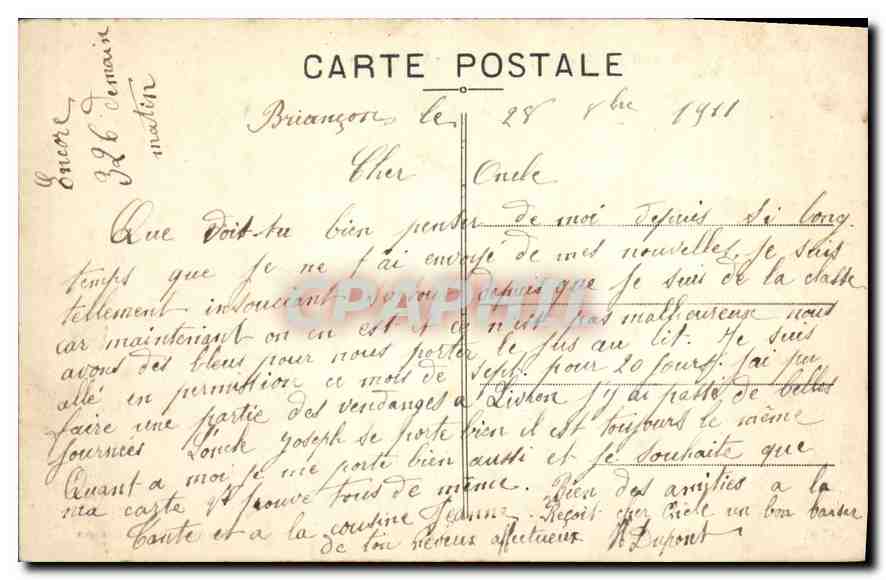 Encore
326 demain
matin
CARTE POSTALE
Briançon le 28 8bre 1911
Cher Oncle
Que doit-tu bien penser de moi depuis si long
temps que je ne t'ai envoyé de mes nouvelles, je suis
tellement insouciant depuis que je suis de la classe
car maintenant on en est et ce n'est pas malheureux nous
avons des bleus pour nous porter le jus au lit. Je suis
allé en permission ce mois de sept. pour 20 jours. j'ai pu
faire une partie des vendanges a Livron j'y ai passé de belles
journées L'oncle Joseph se porte bien il est toujours le même
Quant a moi je me porte bien aussi et je souhaite que
ma carte vs trouve tous de même. Bien des amitiés a la
tante et a la cousine Jeanne. Reçoit cher Oncle un bon baiser
de ton neveux affectueux Dupont
CPAPHIL